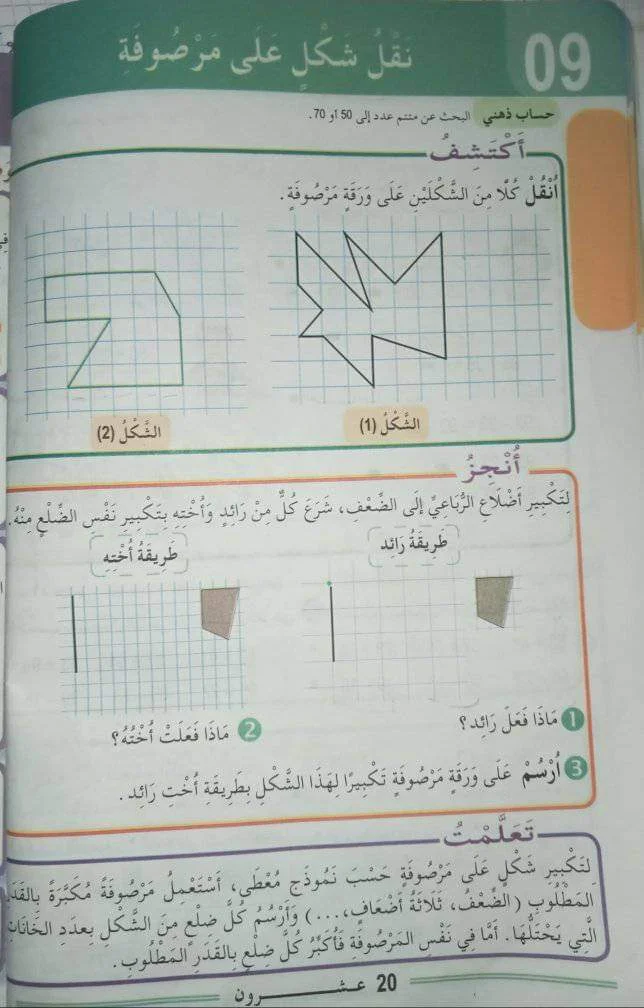 09
نَقْلُ شَكْلٍ عَلَى مَرْصُوفَةٍ
حساب ذهني البحث عن متمم عدد إلى 50 أو 70.
أَكْتَشِفُ
أَنْقُلُ كُلًّا مِنَ الشَّكْلَيْنِ عَلَى وَرَقَةٍ مَرْصُوفَةٍ.
الشَّكْلُ (1)
الشَّكْلُ (2)
أُنْجِزُ
لِتَكْبِيرِ أَضْلَاعِ الرُّبَاعِيِّ إِلَى الضِّعْفِ، شَرَعَ كُلٌّ مِنْ رَائِدٍ وَأُخْتِهِ بِتَكْبِيرِ نَفْسِ الضِّلْعِ مِنْهُ.
طَرِيقَةُ رَائِد
طَرِيقَةُ أُخْتِهِ
1 مَاذَا فَعَلَ رَائِد؟
2 مَاذَا فَعَلَتْ أُخْتُهُ؟
3 أَرْسُمُ عَلَى وَرَقَةٍ مَرْصُوفَةٍ تَكْبِيرًا لِهَذَا الشَّكْلِ بِطَرِيقَةِ أُخْتِ رَائِد.
تَعَلَّمْتُ
لِتَكْبِيرِ شَكْلٍ عَلَى مَرْصُوفَةٍ حَسْبَ نَمُوذَجٍ مُعْطَى، أَسْتَعْمِلُ مَرْصُوفَةً مُكَبَّرَةً بِالقَدَرِ
المَطْلُوبِ (الضِّعْفُ، ثَلَاثَةُ أَضْعَافٍ،...) وَأَرْسُمُ كُلَّ ضِلْعٍ مِنَ الشَّكْلِ بِعَدَدِ الخَانَاتِ
الَّتِي يَحْتَلُّهَا. أَمَّا فِي نَفْسِ المَرْصُوفَةِ فَأُكَبِّرُ كُلَّ ضِلْعٍ بِالقَدَرِ المَطْلُوبِ.
20 عشرون